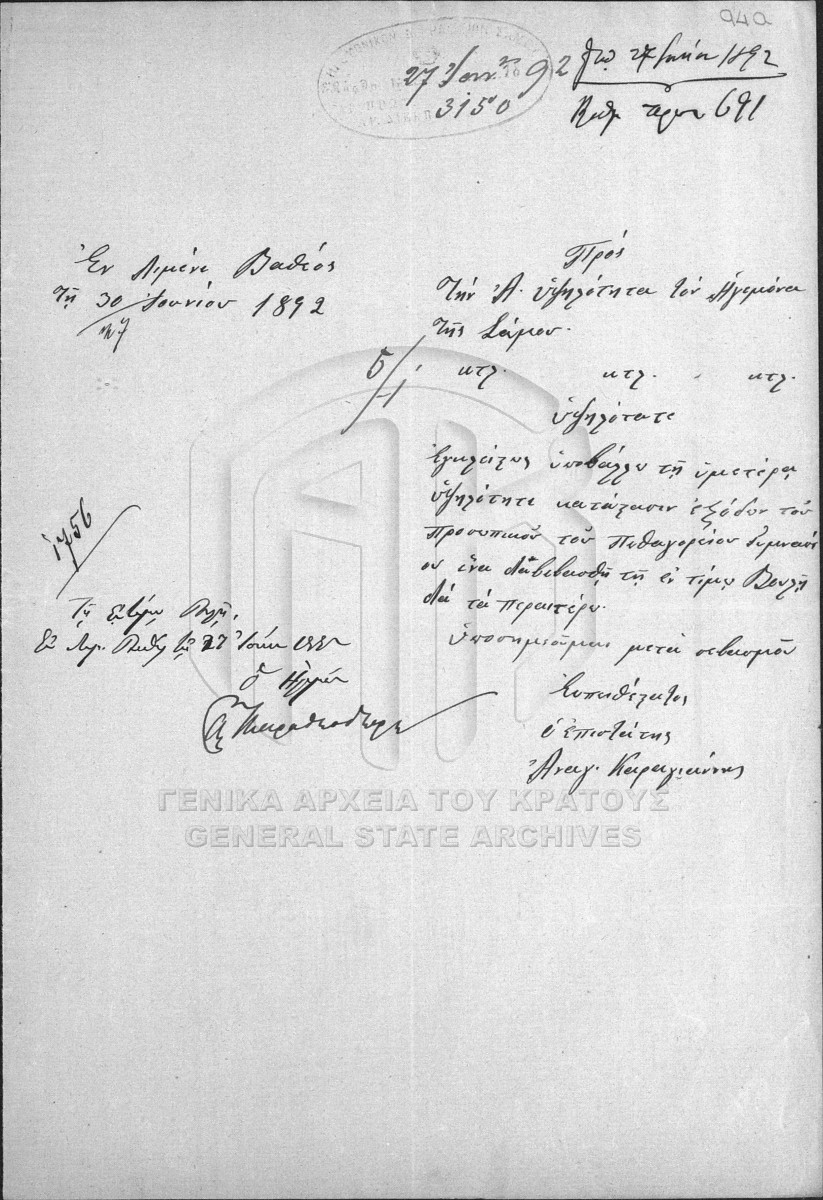 94α
27 Ιουν. 92
3150
27 1892
691
Ἐν Λιμένι Βαθέος
τῇ 30 Ἰουνίου 1892
Πρός
Τὴν Α. Ὑψηλότητα τὸν Ἡγεμόνα
τῆς Σάμου.
κτλ. κτλ. κτλ.
Ὑψηλότατε
Ἐγκλείστως ὑποβάλλω τῇ ὑμετέρᾳ
Ὑψηλότητι κατάστασιν ἐξόδων τοῦ
προσωπικοῦ τοῦ Πυθαγορείου Γυμνασί
ου ἵνα διαβιβασθῇ τῇ ἐντίμῳ Βουλῇ
διὰ τὰ περαιτέρω.
Ὑποσημειοῦμαι μετὰ σεβασμοῦ
Εὐπειθέστατος
ὁ Ἐπιστάτης
Ἀναγ. Καραγιάννης
1756
Τῇ Βουλῇ.
27
ὁ Ἡγεμών
Καραθεοδωρῆ
ΓΕΝΙΚΑ ΑΡΧΕΙΑ ΤΟΥ ΚΡΑΤΟΥΣ
GENERAL STATE ARCHIVES